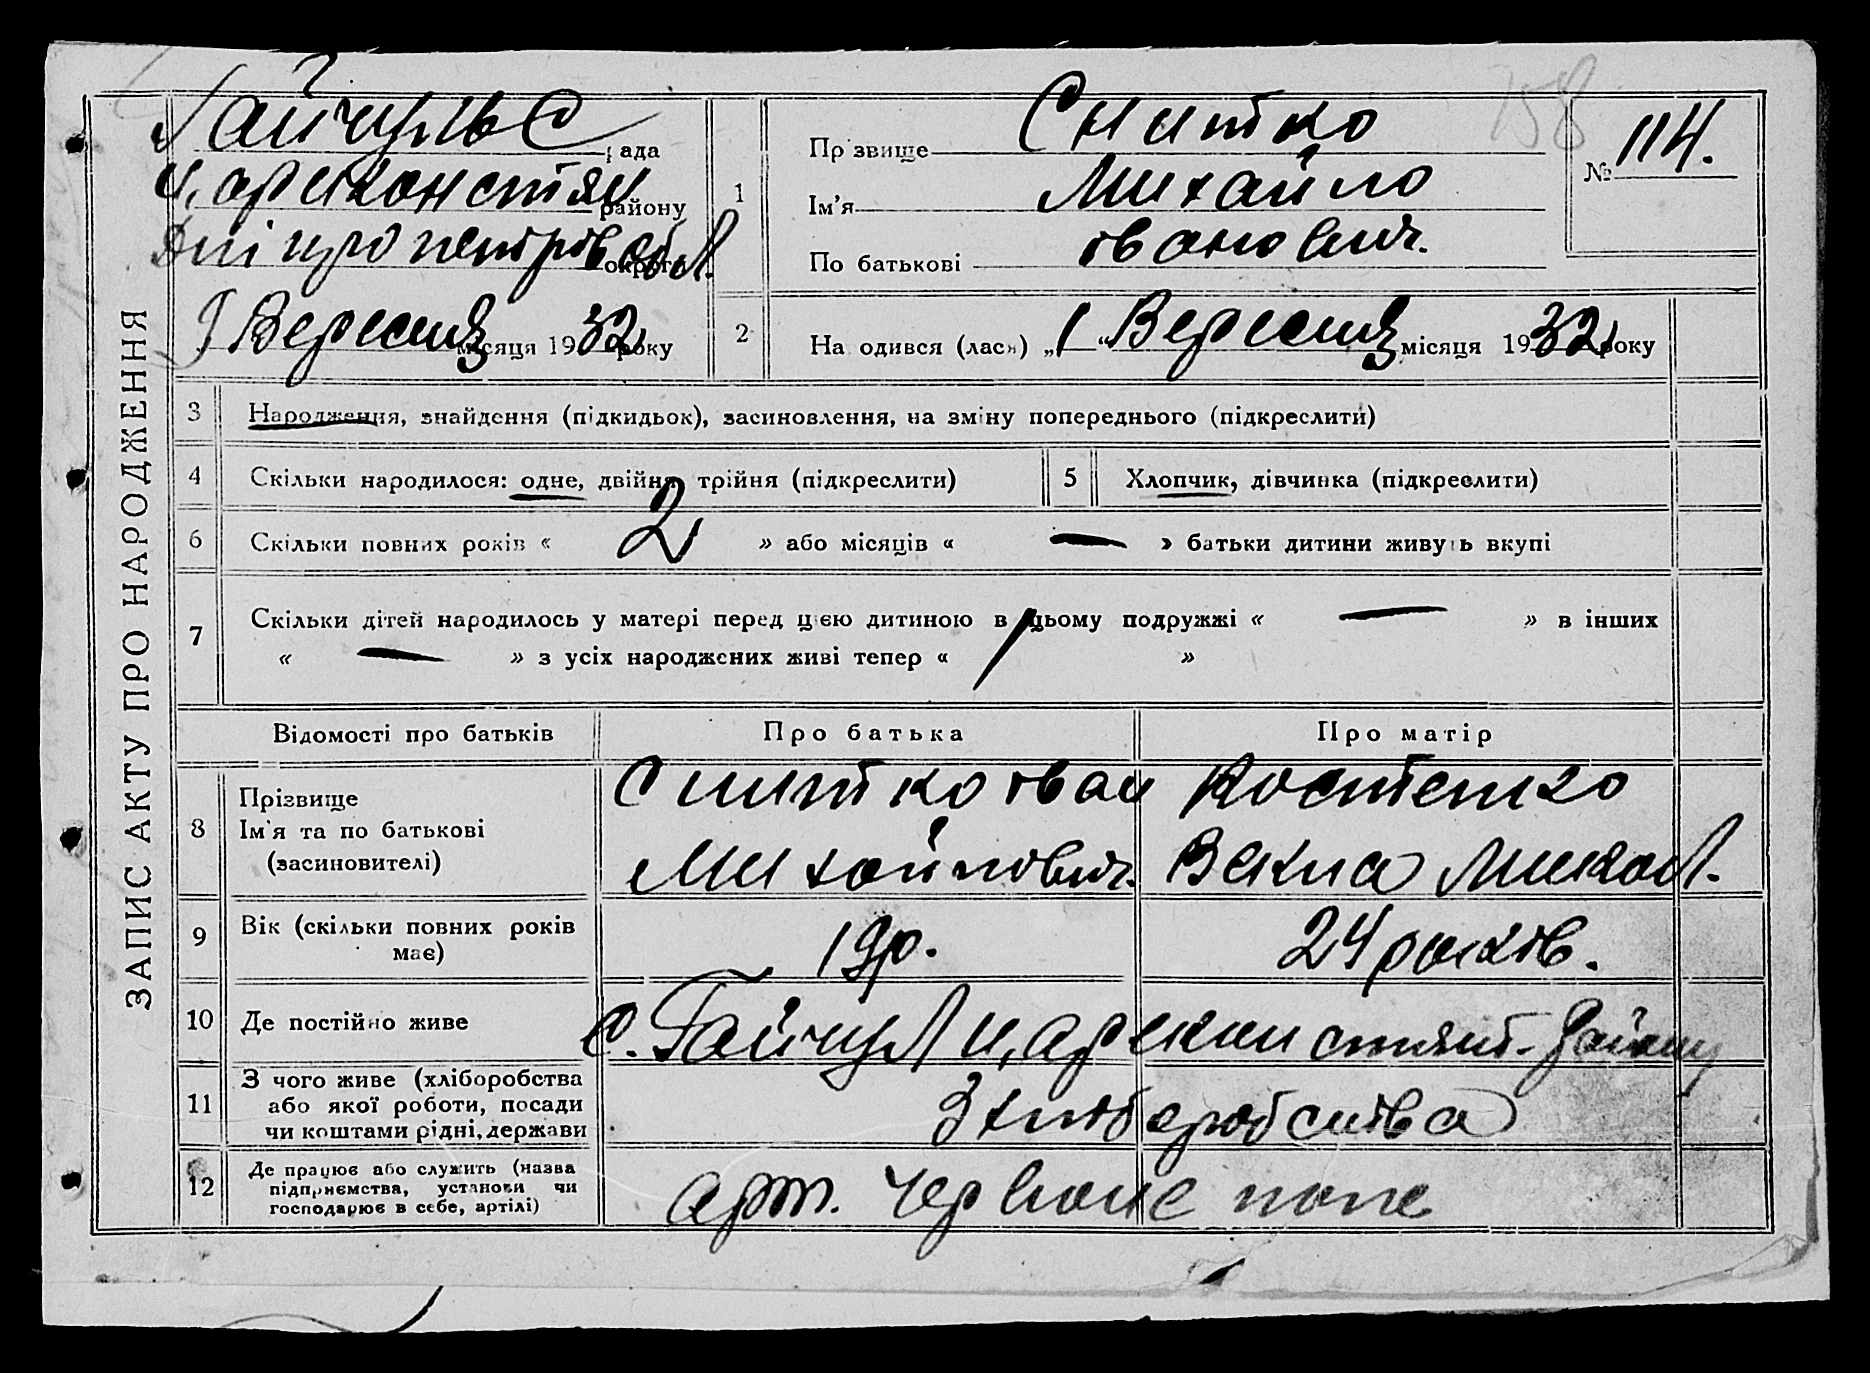 158
Гайчульс рада
Ц,ареконстян району
Дніпропетров обл. округи
9 Вересня місяця 1932 року
1
Прізвище Снитко
Ім'я Михайло
По батькові Іванович.
№ 114.
2
Народився (лась) „1“ Вересня місяця 1932 року
ЗАПИС АКТУ ПРО НАРОДЖЕННЯ
3 Народження, знайдення (підкидьок), засиновлення, на зміну попереднього (підкреслити)
4 Скільки народилося: одне, двійня, трійня (підкреслити)
5 Хлопчик, дівчинка (підкреслити)
6 Скільки повних років « 2 » або місяців « — » батьки дитини живуть вкупі
7 Скільки дітей народилось у матері перед цією дитиною в цьому подружжі « — » в інших
« — » з усіх народжених живі тепер « »
Відомості про батьків Про батька Про матір
8 Прізвище
Ім'я та по батькові
(засиновителі)
Снитко Іван
Михайлович.
Костенко
Векла Микол.
9 Вік (скільки повних років має) 19р. 24 років.
10 Де постійно живе с. Гайчул Ц,арекон стянт. Району
11 З чого живе (хліборобства
або якої роботи, посади
чи коштами рідні, держави
З хліборобства
12 Де працює або служить (назва
підприємства, установи чи
господарює в себе, артілі)
арт. Червоне поле